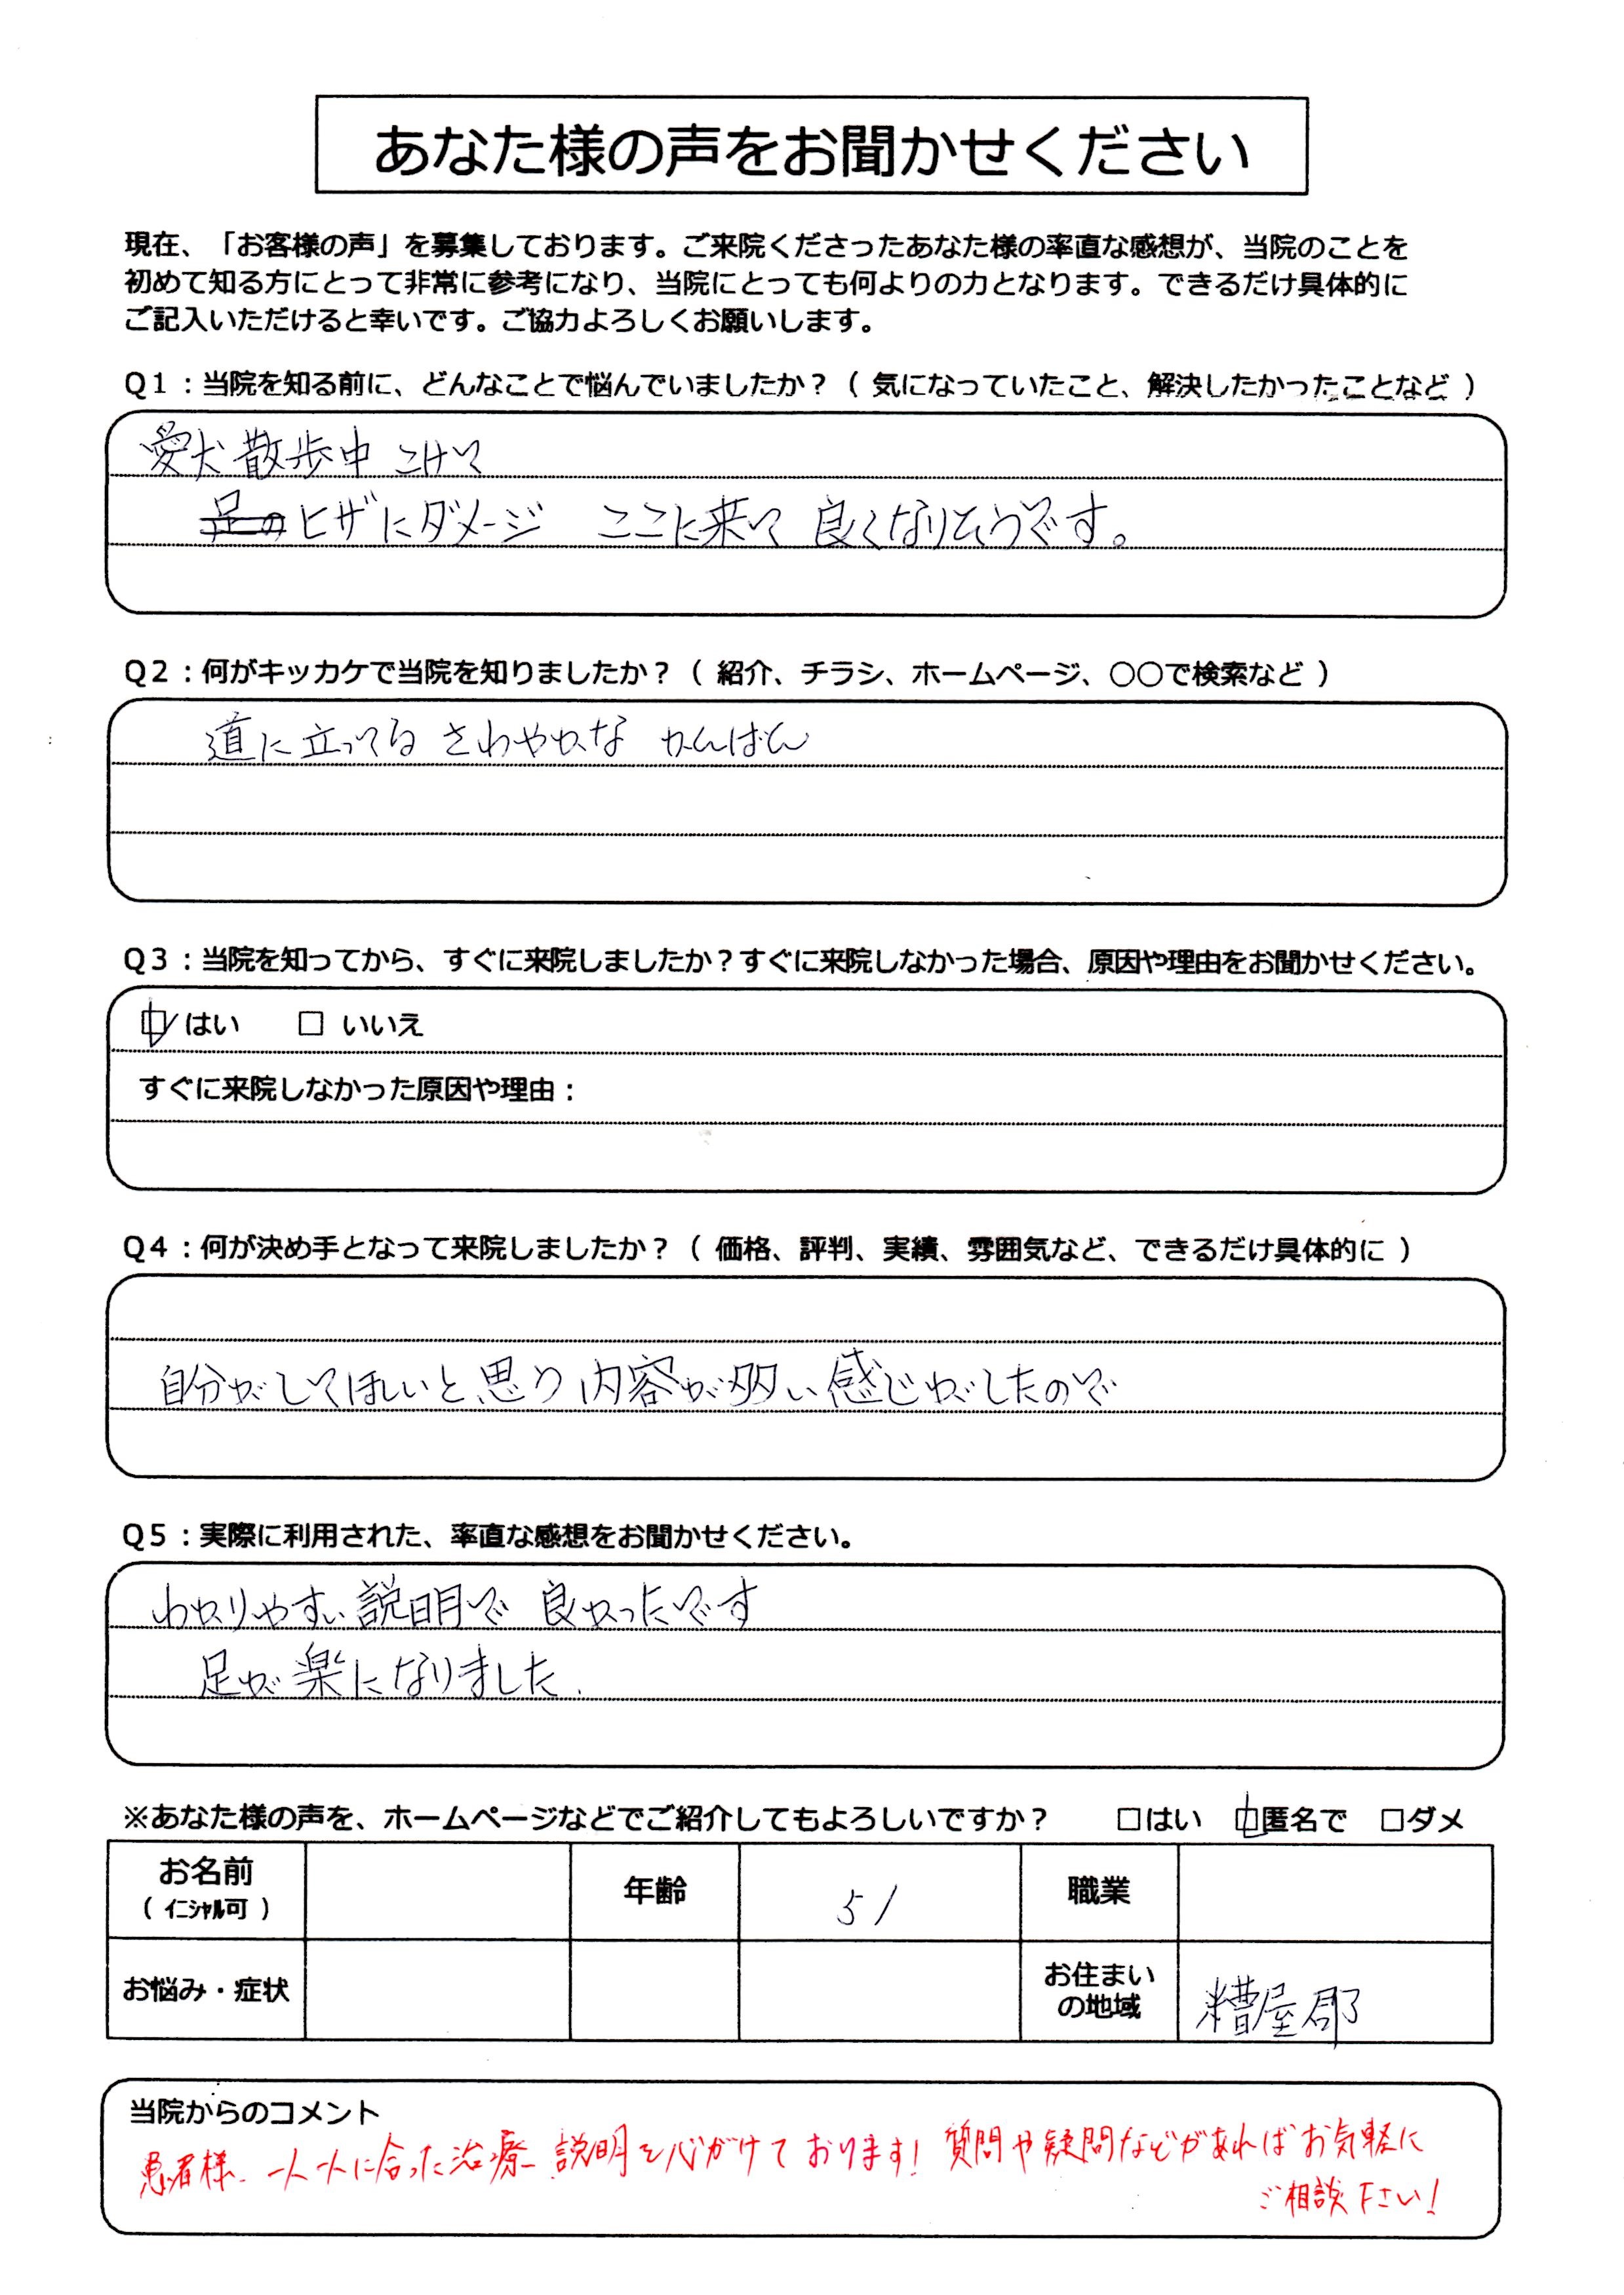 あなた様の声をお聞かせください
現在、「お客様の声」を募集しております。ご来院くださったあなた様の率直な感想が、当院のことを
初めて知る方にとって非常に参考になり、当院にとっても何よりの力となります。できるだけ具体的に
ご記入いただけると幸いです。ご協力よろしくお願いします。
Q1：当院を知る前に、どんなことで悩んでいましたか？（ 気になっていたこと、解決したかったことなど ）
愛犬散歩中 こけて
足の ヒザにダメージ ここに来て 良くなりそうです。
Q2：何がキッカケで当院を知りましたか？（ 紹介、チラシ、ホームページ、○○で検索など ）
道に立ってる さわやかな かんばん
Q3：当院を知ってから、すぐに来院しましたか？すぐに来院しなかった場合、原因や理由をお聞かせください。
☑ はい □ いいえ
すぐに来院しなかった原因や理由：
Q4：何が決め手となって来院しましたか？（ 価格、評判、実績、雰囲気など、できるだけ具体的に ）
自分がしてほしいと思う内容が多い感じがしたので
Q5：実際に利用された、率直な感想をお聞かせください。
わかりやすい説明で 良かったです
足が楽になりました.
※あなた様の声を、ホームページなどでご紹介してもよろしいですか？ □はい ☑匿名で □ダメ
お名前 年齢 51 職業
（ イニシャル可 ）
お悩み・症状 お住まいの地域 糟屋郡
当院からのコメント
患者様、一人一人に合った治療、説明を心がけております！ 質問や疑問などがあればお気軽に
ご相談下さい！